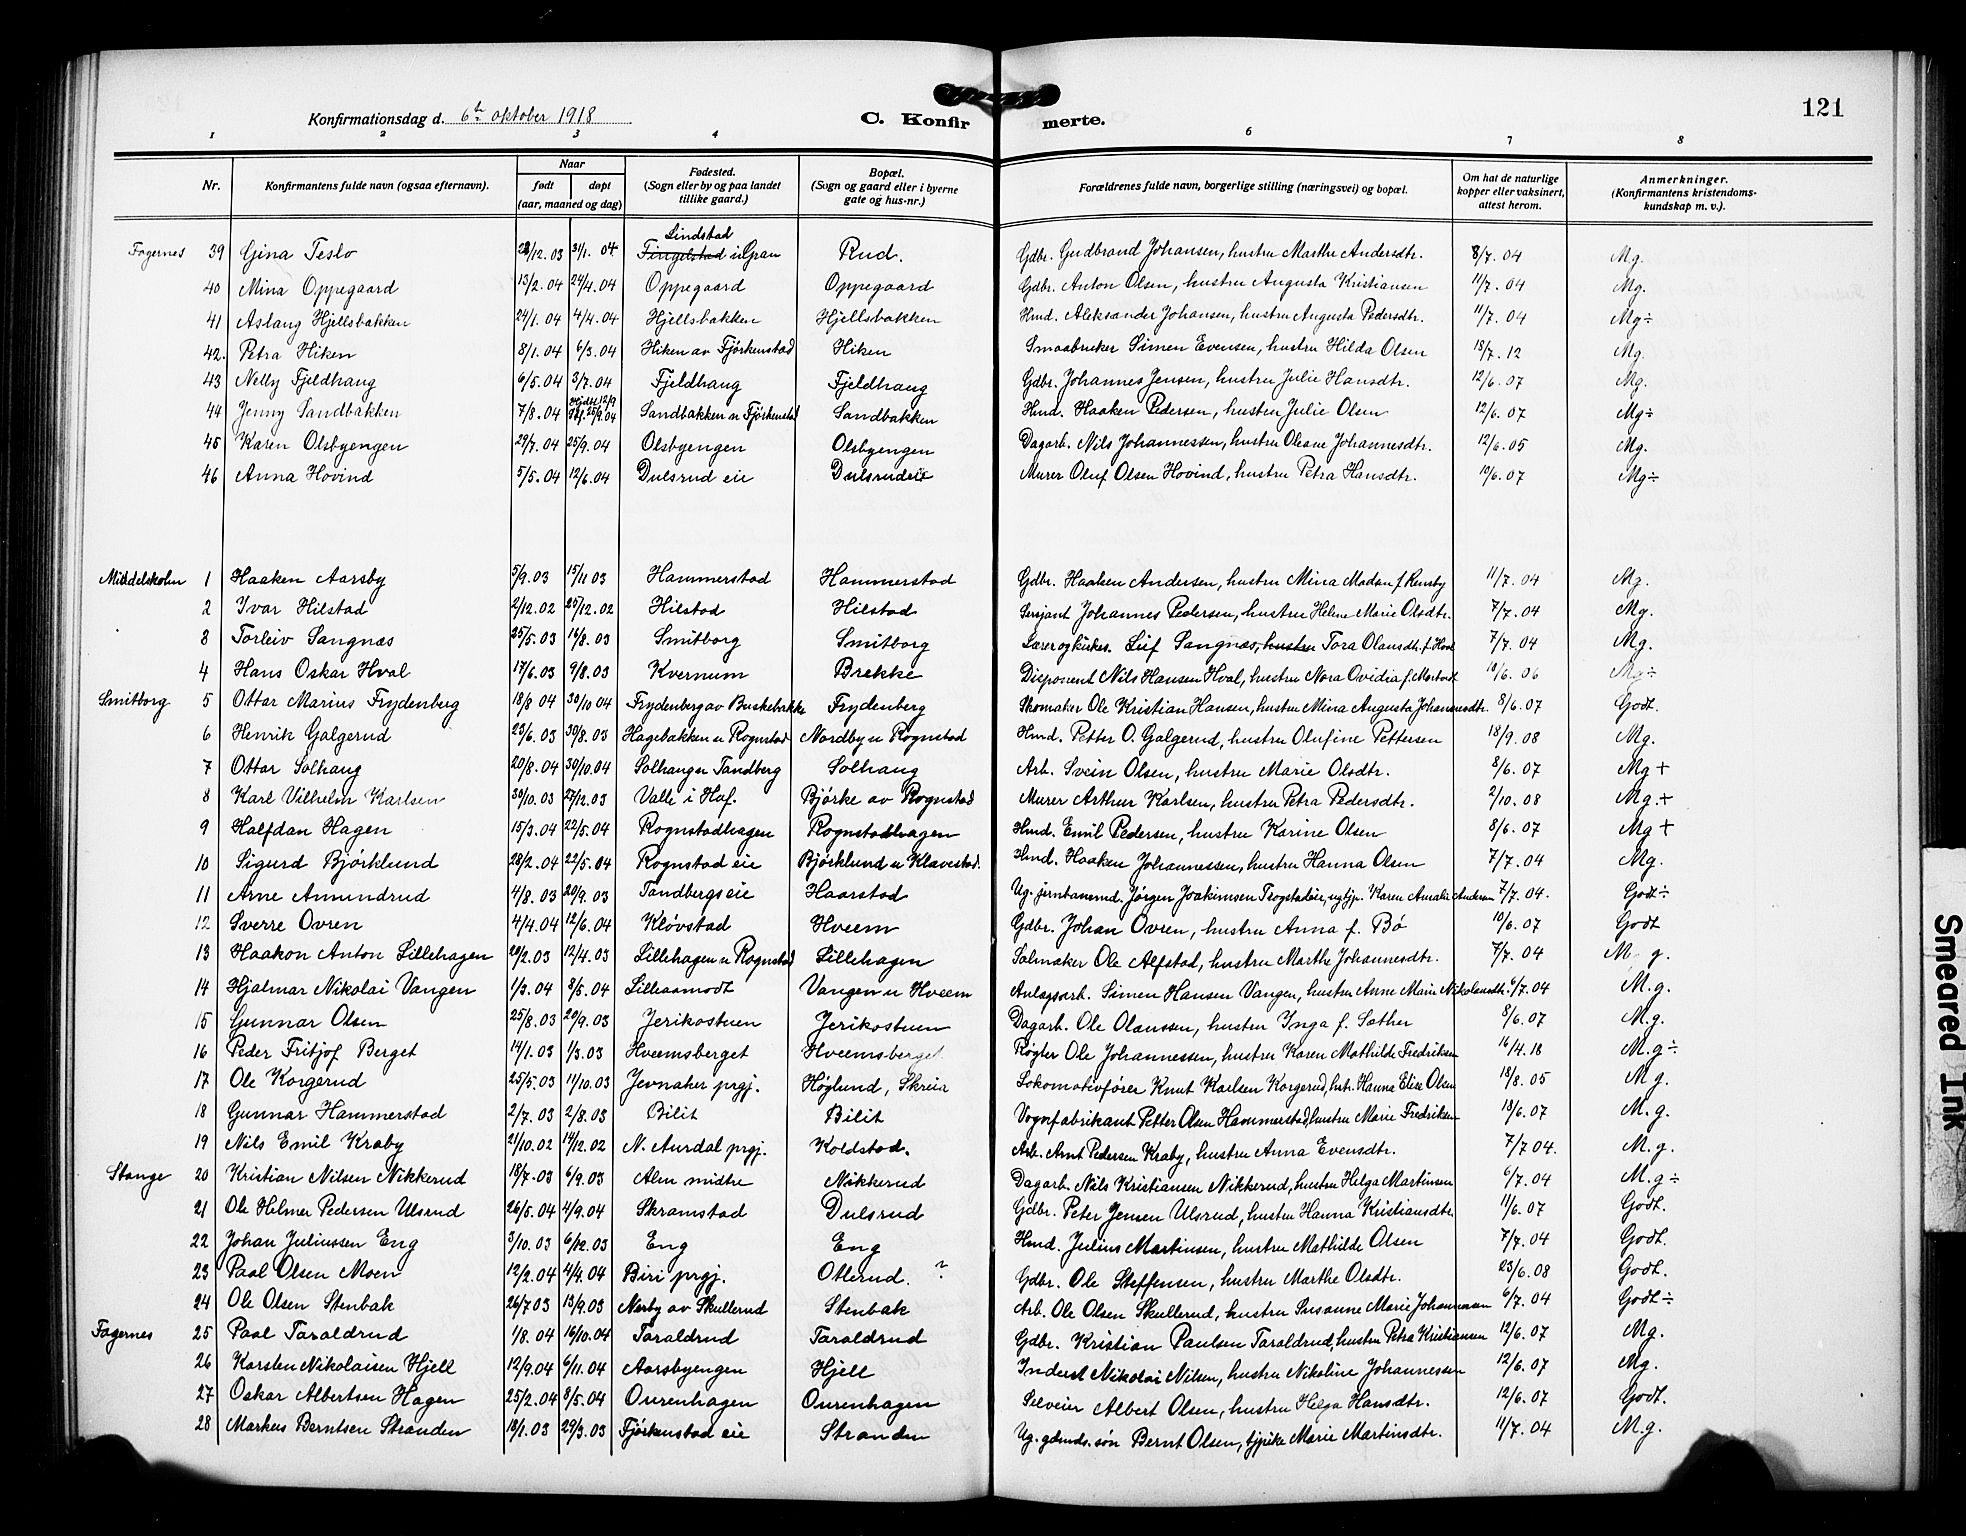 121
Konfirmationsdag d. 6te oktober 1918
C. Konfirmerte.
1 2 3 4 6 7 8
Nr. Konfirmantens fulde navn (ogsaa efternavn). Naar født døpt (aar, maaned og dag) Fødested. (Sogn eller by og paa landet tillike gaard.) Bopæl. (Sogn og gaard eller i byerne gate og hus-nr.) Forældrenes fulde navn, borgerlige stilling (næringsvei) og bopæl. Om hat de naturlige kopper eller vaksinert, attest herom. Anmerkninger. (Konfirmantens kristendomskundskap m. v.).
Fagernes 39 Gina Teslo 28/12.03 31/1.04 Lindstad Fingelstad i Gran Rud. Gdbr. Gudbrand Johansen, hustru Marthe Andersdtr. 8/7.04 Mg.
40 Mina Oppegaard 13/2.04 24/4.04 Oppegaard Oppegaard Gdbr. Anton Olsen, hustru Augusta Kristiansen 11/7.04 Mg.
41 Aslaug Hjellsbakken 24/1.04 4/4.04 Hjellsbakken Hjellsbakken Hmd. Aleksander Johansen, hustru Augusta Pedersdtr. 11/7.04 Mg÷
42. Petra Hiken 8/1.04 6/3.04 Hiken av Fjørkenstad Hiken Smaabruker Simen Evensen, hustru Hilda Olsen 18/7.12 Mg.
43 Nelly Fjeldhaug 6/5.04 3/7.04 Fjeldhaug Fjeldhaug Gdbr. Johannes Jensen, hustru Julie Hansdtr. 12/6.07 Mg.
44 Jenny Sandbakken 7/8.04 25/9.04 Sandbakken u Fjørkenstad Sandbakken Hmd. Haaken Pedersen, hustru Julie Olsen 12/6.07 Mg÷
45 Karen Olsbyengen 29/7.04 25/9.04 Olsbyengen Olsbyengen Dagarb. Nils Johannessen, hustru Oleane Johannesdtr. 12/6.05 Mg.
46 Anna Hovind 5/5.04 12/6.04 Dulsrud eie Dulsrudeie Murer Oluf Olsen Hovind, hustru Petra Hansdtr. 10/6.07 Mg÷
Middelskolen 1 Haaken Aarsby 5/9.03 15/11 03 Hammerstad Hammerstad Gdbr. Haaken Andersen, hustru Mina f. 11/7.04 Mg.
2 Ivar Hilstad 2/12.02 25/12.02 Hilstad Hilstad Sersjant Johannes Pedersen, hustru Helene Marie Olsdtr. 7/7.04 Mg.
3 Torleiv Sangnæs 25/5.03 16/8.03 Smitborg Smitborg Lærer og kirkes. Leif Sangnæs, hustru Tora Olausdtr. f. Hval 7/7.04 Mg.
4 Hans Oskar Hval 17/6.03 9/8.03 Kvernum Brekke Disponent Nils Hansen Hval, hustru Nora Ovidia f. 10/6.06 Mg÷
Smitborg 5 Ottar Marius Frydenberg 18/8 04 30/10 04 Frydenberg av Buskebakke Frydenberg Skomaker Ole Kristian Hansen, hustru Mina Augusta Johannesdtr. 8/6.07 Godt.
6 Henrik Galgerud 23/6.03 30/8.03 Hagebakken u Rognstad Nordby u Rognstad Hmd. Petter O. Galgerud, hustru Olufine Pettersen 18/9.08 Mg.
7 Ottar Solhaug 20/8.04 30/10.04 Solhaug u Tandberg Solhaug Arb. Svein Olsen, hustru Marie Olsdtr. 8/6.07 Mg+
8 Karl Vilhelm Karlsen 30/10.03 27/12.03 Valle i Hof. Bjørke av Rognstad Murer Arthur Karlsen, hustru Petra Pedersdtr. 2/10.08 Mg.+
9 Halfdan Hagen 15/3.04 22/5.04 Rognstadhagen Rognstadhagen Hmd. Emil Pedersen, hustru Karine Olsen 8/6.07 Mg+
10 Sigurd Bjørklund 28/2.04 22/5.04 Rognstad eie Bjørklund u Klavestad. Hmd. Haaken Johannessen, hustru Hanna Olsen 7/7.04 Mg.
11 Arne Amundrud 4/8.03 20/9.03 Tandbergseie Haarstad Ug. jernbanemd. Jørgen Joakimsen ug. tjp. Karen Amalie Andersen 7/7.04. Godt÷
12 Sverre Ovren 4/4.04 12/6.04 Kløvstad Hveem Gdbr. Johan Ovren, hustru Anna f. Bø 10/6.07 Godt
13 Haakon Anton Lillehagen 20/2.03 12/4.03 Lillehagen u Rognstad Lillehagen Salmaker Ole Alfstad, hustru Marthe Johannesdtr. 7/7.04 M. g.
14 Hjalmar Nikolai Vangen 1/3.04 8/5.04 Lilleaamodt Vangen u Hveem Anlægsarb. Simen Hansen Vangen, hustru Anne Marie Nikolausdtr. 6/7.04 M.g.
15 Gunnar Olsen 25/8.03 20/9.03 Jerikostuen Jerikostuen Dagarb. Ole Olaussen, hustru Inga f. Sæther 8/6.07 M.g.
16 Peder Fritjof Berget 14/1.03 1/3.03 Hveemsberget Hveemsberget. Røgter Ole Johannessen, hustru Karen Mathilde Fredriksen 16/4.18 M.g÷
17 Ole Korgerud 25/5.03 11/10.03 Jevnaker prgj. Høglund, Skreia Lokomotivfører Knut Karlsen Korgerud, hst. Hanna Elise Olsen 18/8.05 Mg.
18 Gunnar Hammerstad 2/7.03 2/8.03 Bilit Bilit Vognfabrikant Petter Olsen Hammerstad, hustru Marie Fredriksen 18/6.07 M.g.
19 Nils Emil Kraby 21/10.02 14/12.02 N. Aurdal prgj. Koldstad. Arb. Amt Pedersen Kraby, hustru Anna Evensdtr. 7/7 04. M.g.
Stange 20 Kristian Nilsen Nikkerud 18/7.03 6/9.03 Alm midtre Nikkerud Dagarb. Nils Kristiansen Nikkerud, hustru Helga Martinsen 6/7.04 M.g÷
21 Ole Helmer Pedersen Ulsrud 26/5.04 4/9.04 Skramstad Dulsrud Gdbr. Peter Jensen Ulsrud, hustru Hanna Kristiansdtr. 11/6.07 Godt.
22 Johan Juliussen Eng 3/10.03 6/12.03 Eng Eng Hmd. Julius Martinsen, hustru Mathilde Olsen 7/7.04 Godt.
23 Paal Olsen Moen 12/2.04 4/4.04 Biri prgj. Otterud. ? Gdbr. Ole Steffensen, hustru Marthe Olsdtr. 23/6.08 Godt.
24 Ole Olsen Stenbak 26/7 03 13/9.03 Nerby av Skullerud Stenbak Arb. Ole Olsen Skullerud, hustru Susanne Marie Johannesen 6/7.04 Godt÷
Fagernes 25 Paal Taraldrud 1/8.04 16/10.04 Taraldrud Taraldrud Gdbr. Kristian Paulsen Taraldrud, hustru Petra Kristiansen 12/6.07 Mg.
26 Karsten Nikolaisen Hjell 12/9.04 6/11.04 Aarsbyengen Hjell Inderst Nikolai Nilsen, hustru Nikoline Johannessen 12/6.07 Mg.
27 Oskar Albertsen Hagen 25/2.04 8/5.04 Ourenhagen Ourenhagen Selveier Albert Olsen, hustru Helga Hansdtr. 12/6.07 Godt.
28 Markus Berntsen Stranden 18/1.03 29/3.03 Fjørkenstad eie Stranden Ug. gdmds. søn Bernt Olsen, tjpike Marie Martinsdtr. 11/7.04 M.g.
Smeared Ink